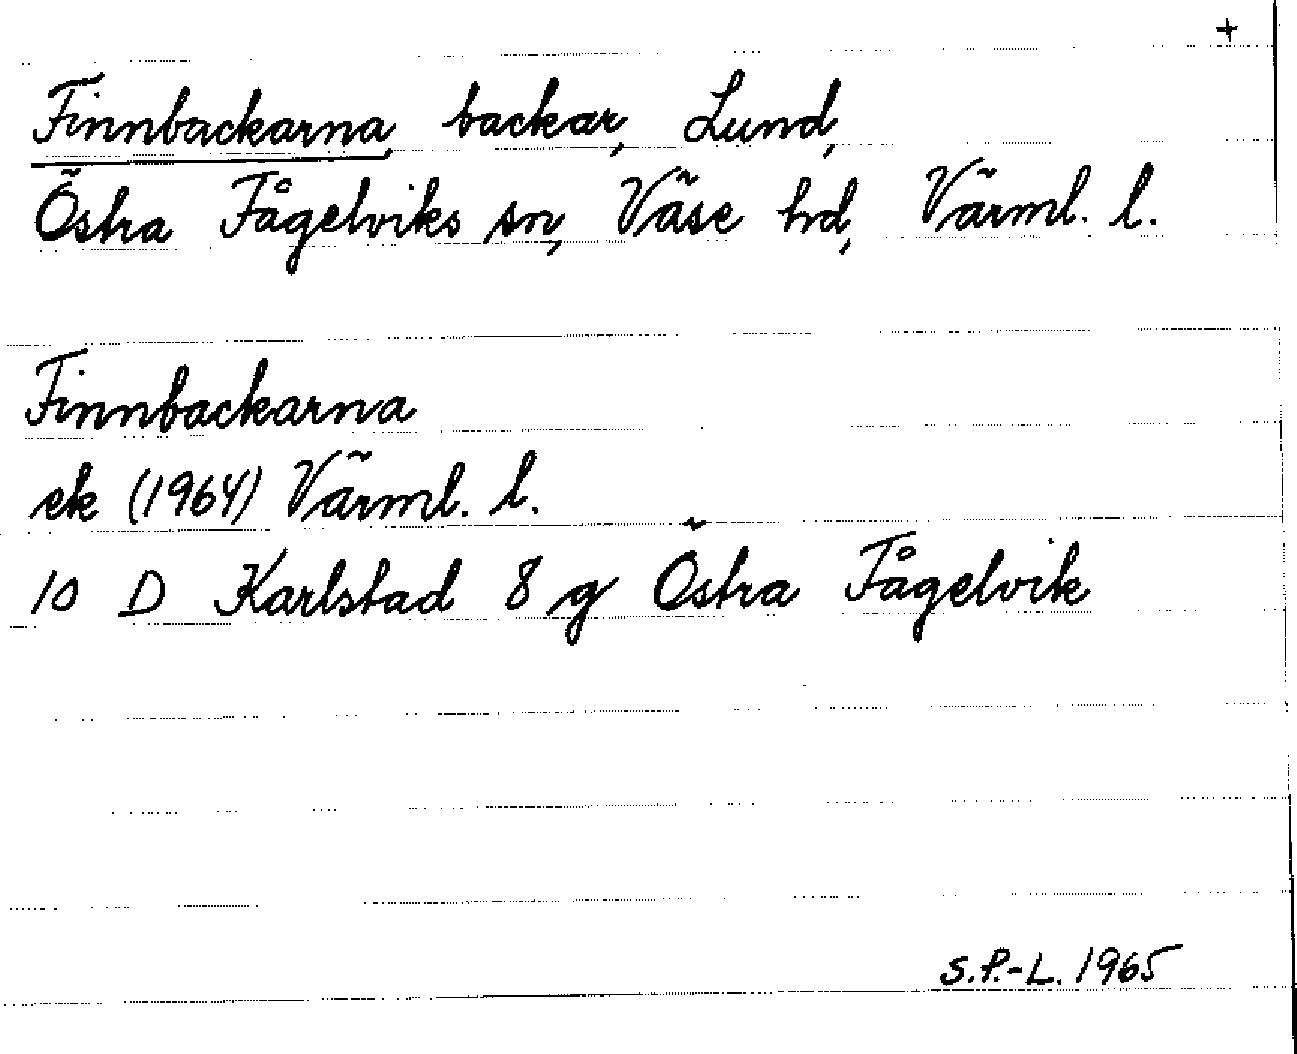 +
Finnbackarna, backar, Lund,
Östra Fågelviks sn, Väse hd, Värml. l.
Finnbackarna
ek (1964) Värml. l.
10 D Karlstad 8 g Östra Fågelvik
S.P.-L. 1965